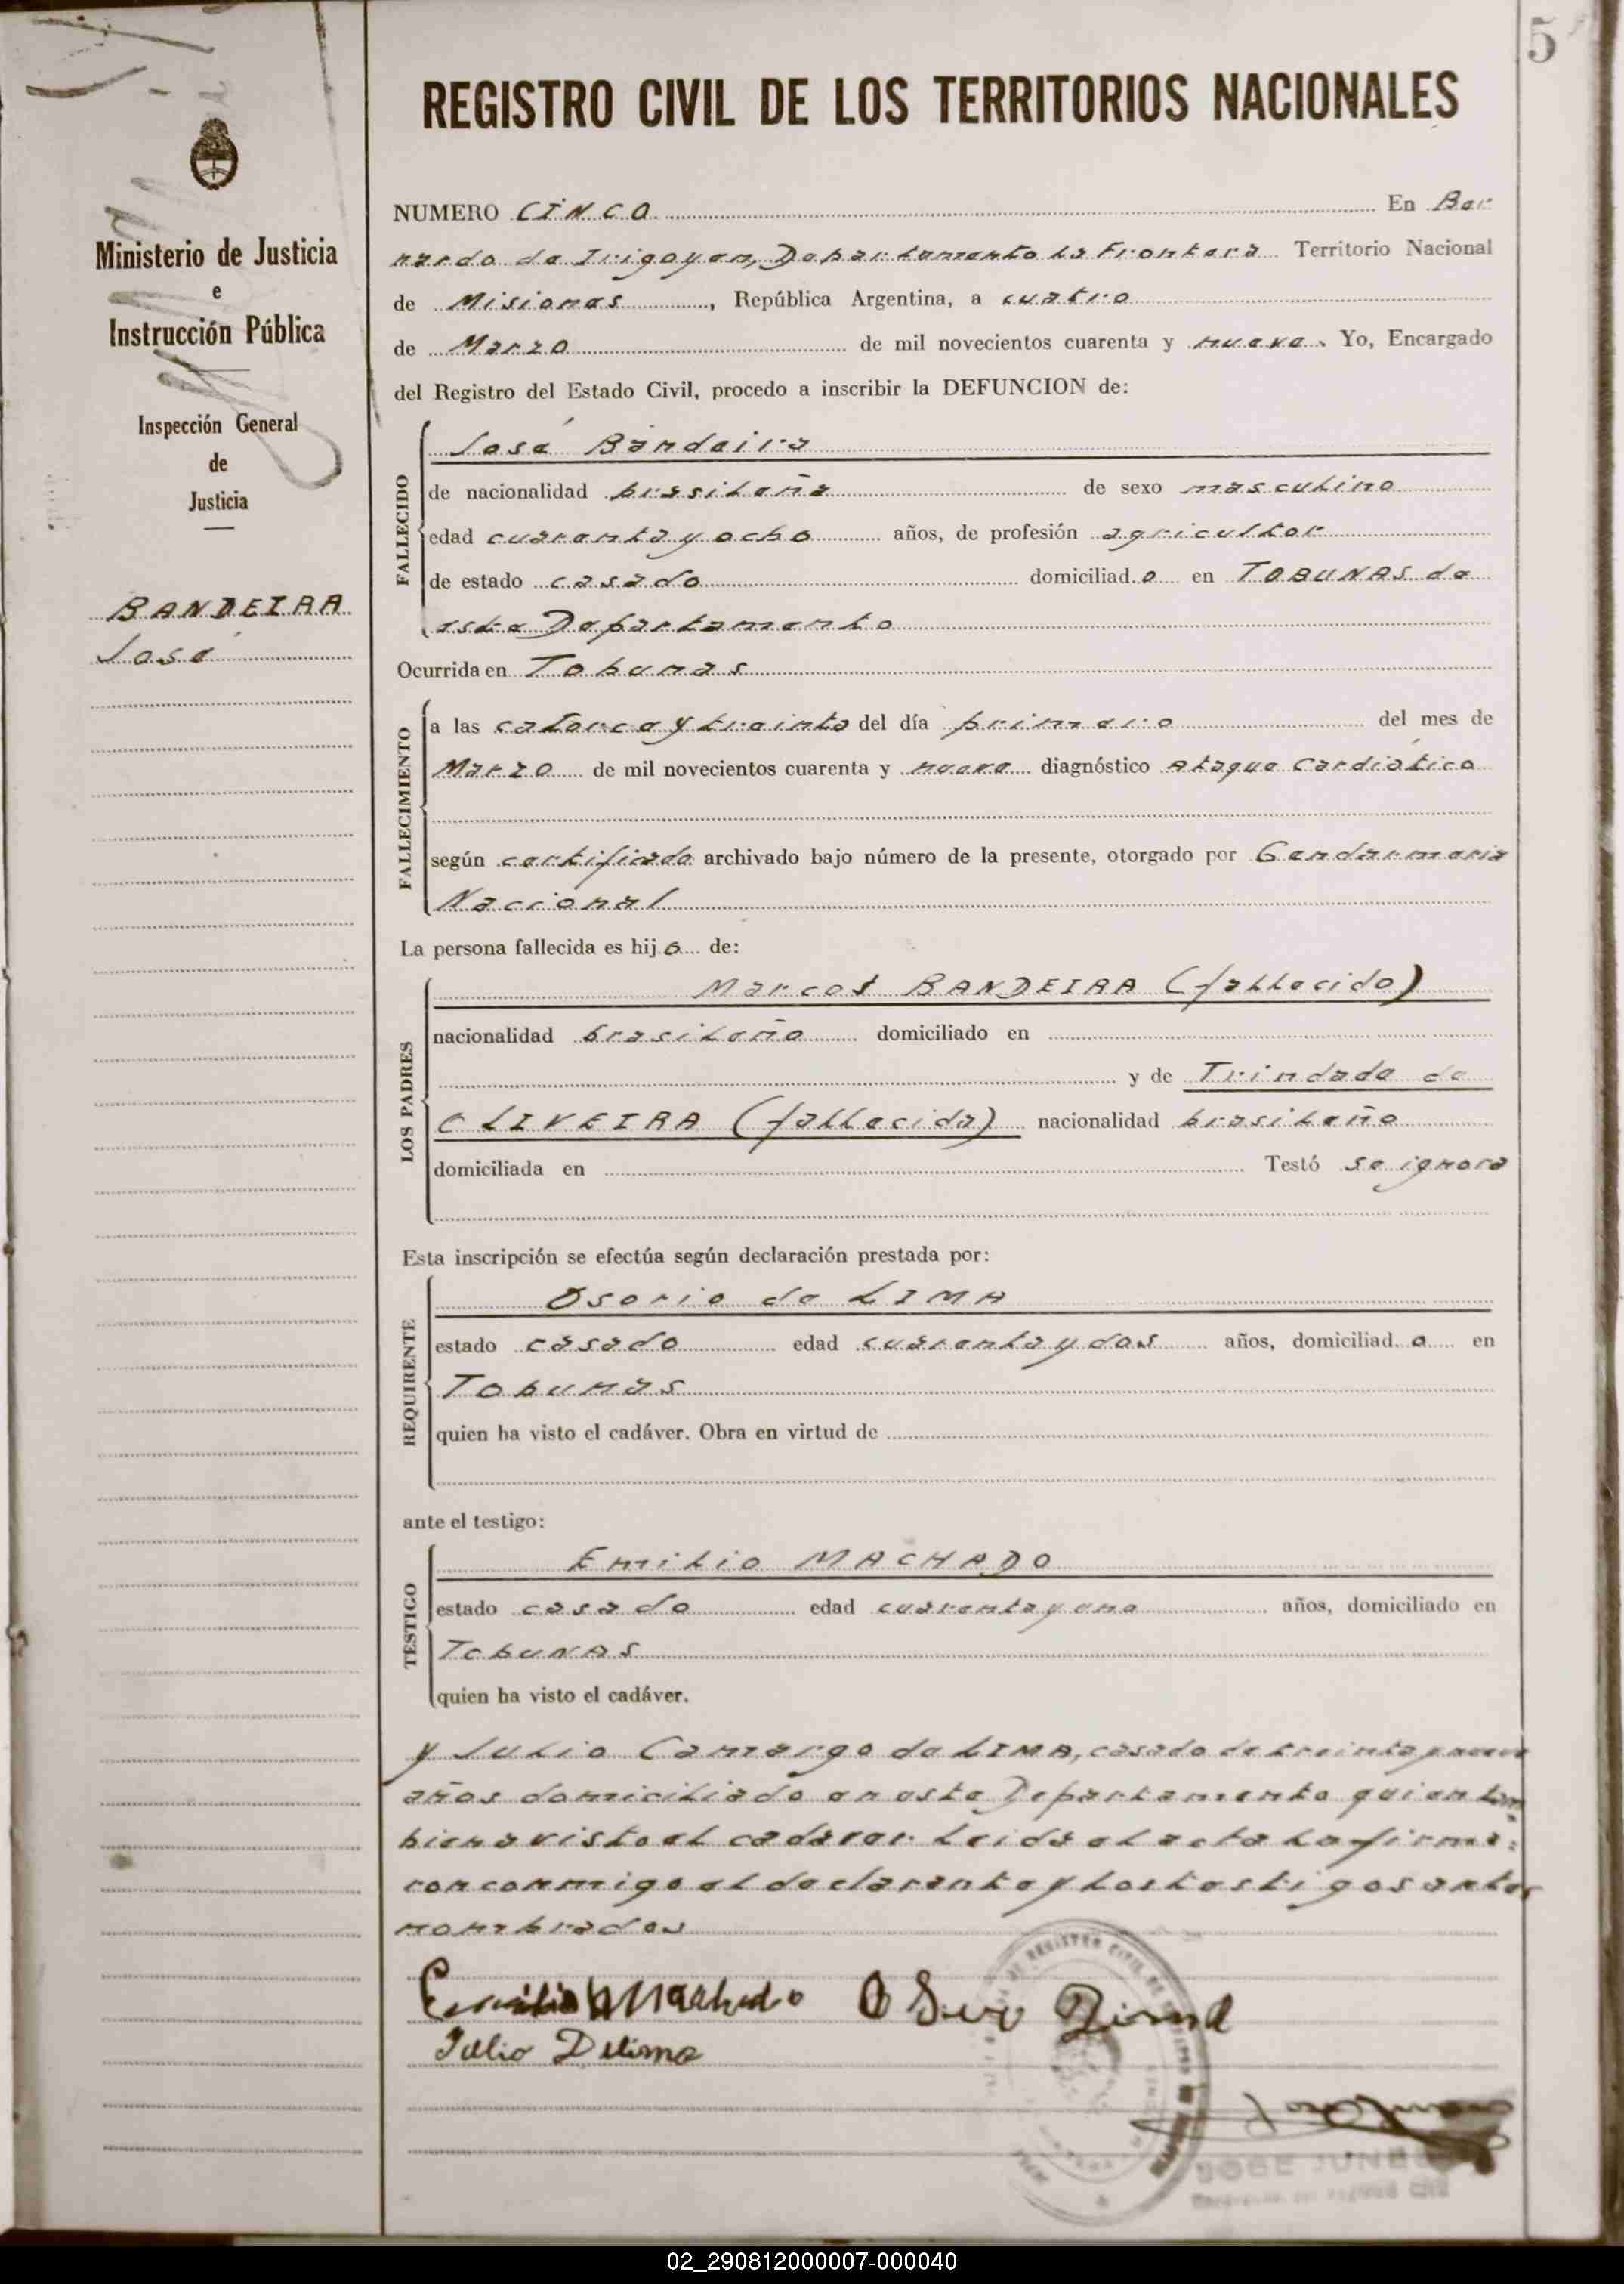 5
REGISTRO CIVIL DE LOS TERRITORIOS NACIONALES
Ministerio de Justicia
e
Instrucción Pública
Inspección General
de
Justicia
BANDEIRA
José
NUMERO CINCO En Ber
nardo de Irigoyen, Departamento La Frontera Territorio Nacional
de Misiones, República Argentina, a cuatro
de Marzo de mil novecientos cuarenta y nueve. Yo, Encargado
del Registro del Estado Civil, procedo a inscribir la DEFUNCION de:
FALLECIDO
José Bandeira
de nacionalidad brasileña de sexo masculino
edad cuarenta y ocho años, de profesión agricultor
de estado casado domiciliado en TOBUNAS de
este Departamento
Ocurrida en Tobunas
FALLECIMIENTO
a las catorce y treinta del día primero del mes de
Marzo de mil novecientos cuarenta y nueve diagnóstico Ataque Cardiático
según certificado archivado bajo número de la presente, otorgado por Gendarmeria
Nacional
La persona fallecida es hijo de:
LOS PADRES
Marcos BANDEIRA (fallecido)
nacionalidad brasileño domiciliado en
y de Trindade de
OLIVEIRA (fallecida) nacionalidad brasileño
domiciliada en Testó se ignora
Esta inscripción se efectúa según declaración prestada por:
REQUIRENTE
Osorio de LIMA
estado casado edad cuarenta y dos años, domiciliado en
Tobunas
quien ha visto el cadáver. Obra en virtud de
ante el testigo:
TESTIGO
Emilio MACHADO
estado casado edad cuarenta y uno años, domiciliado en
TobuNAS
quien ha visto el cadáver.
y Julio Camargo de LIMA, casado de treinta y nueve
años domiciliado en este Departamento quien tam
bien a visto el cadaver. Leida el acta la firma:
ron conmigo el declarante y los testigos antes
nombrados
Emilio Machado
Julio Delima
JOSE
02_290812000007-000040